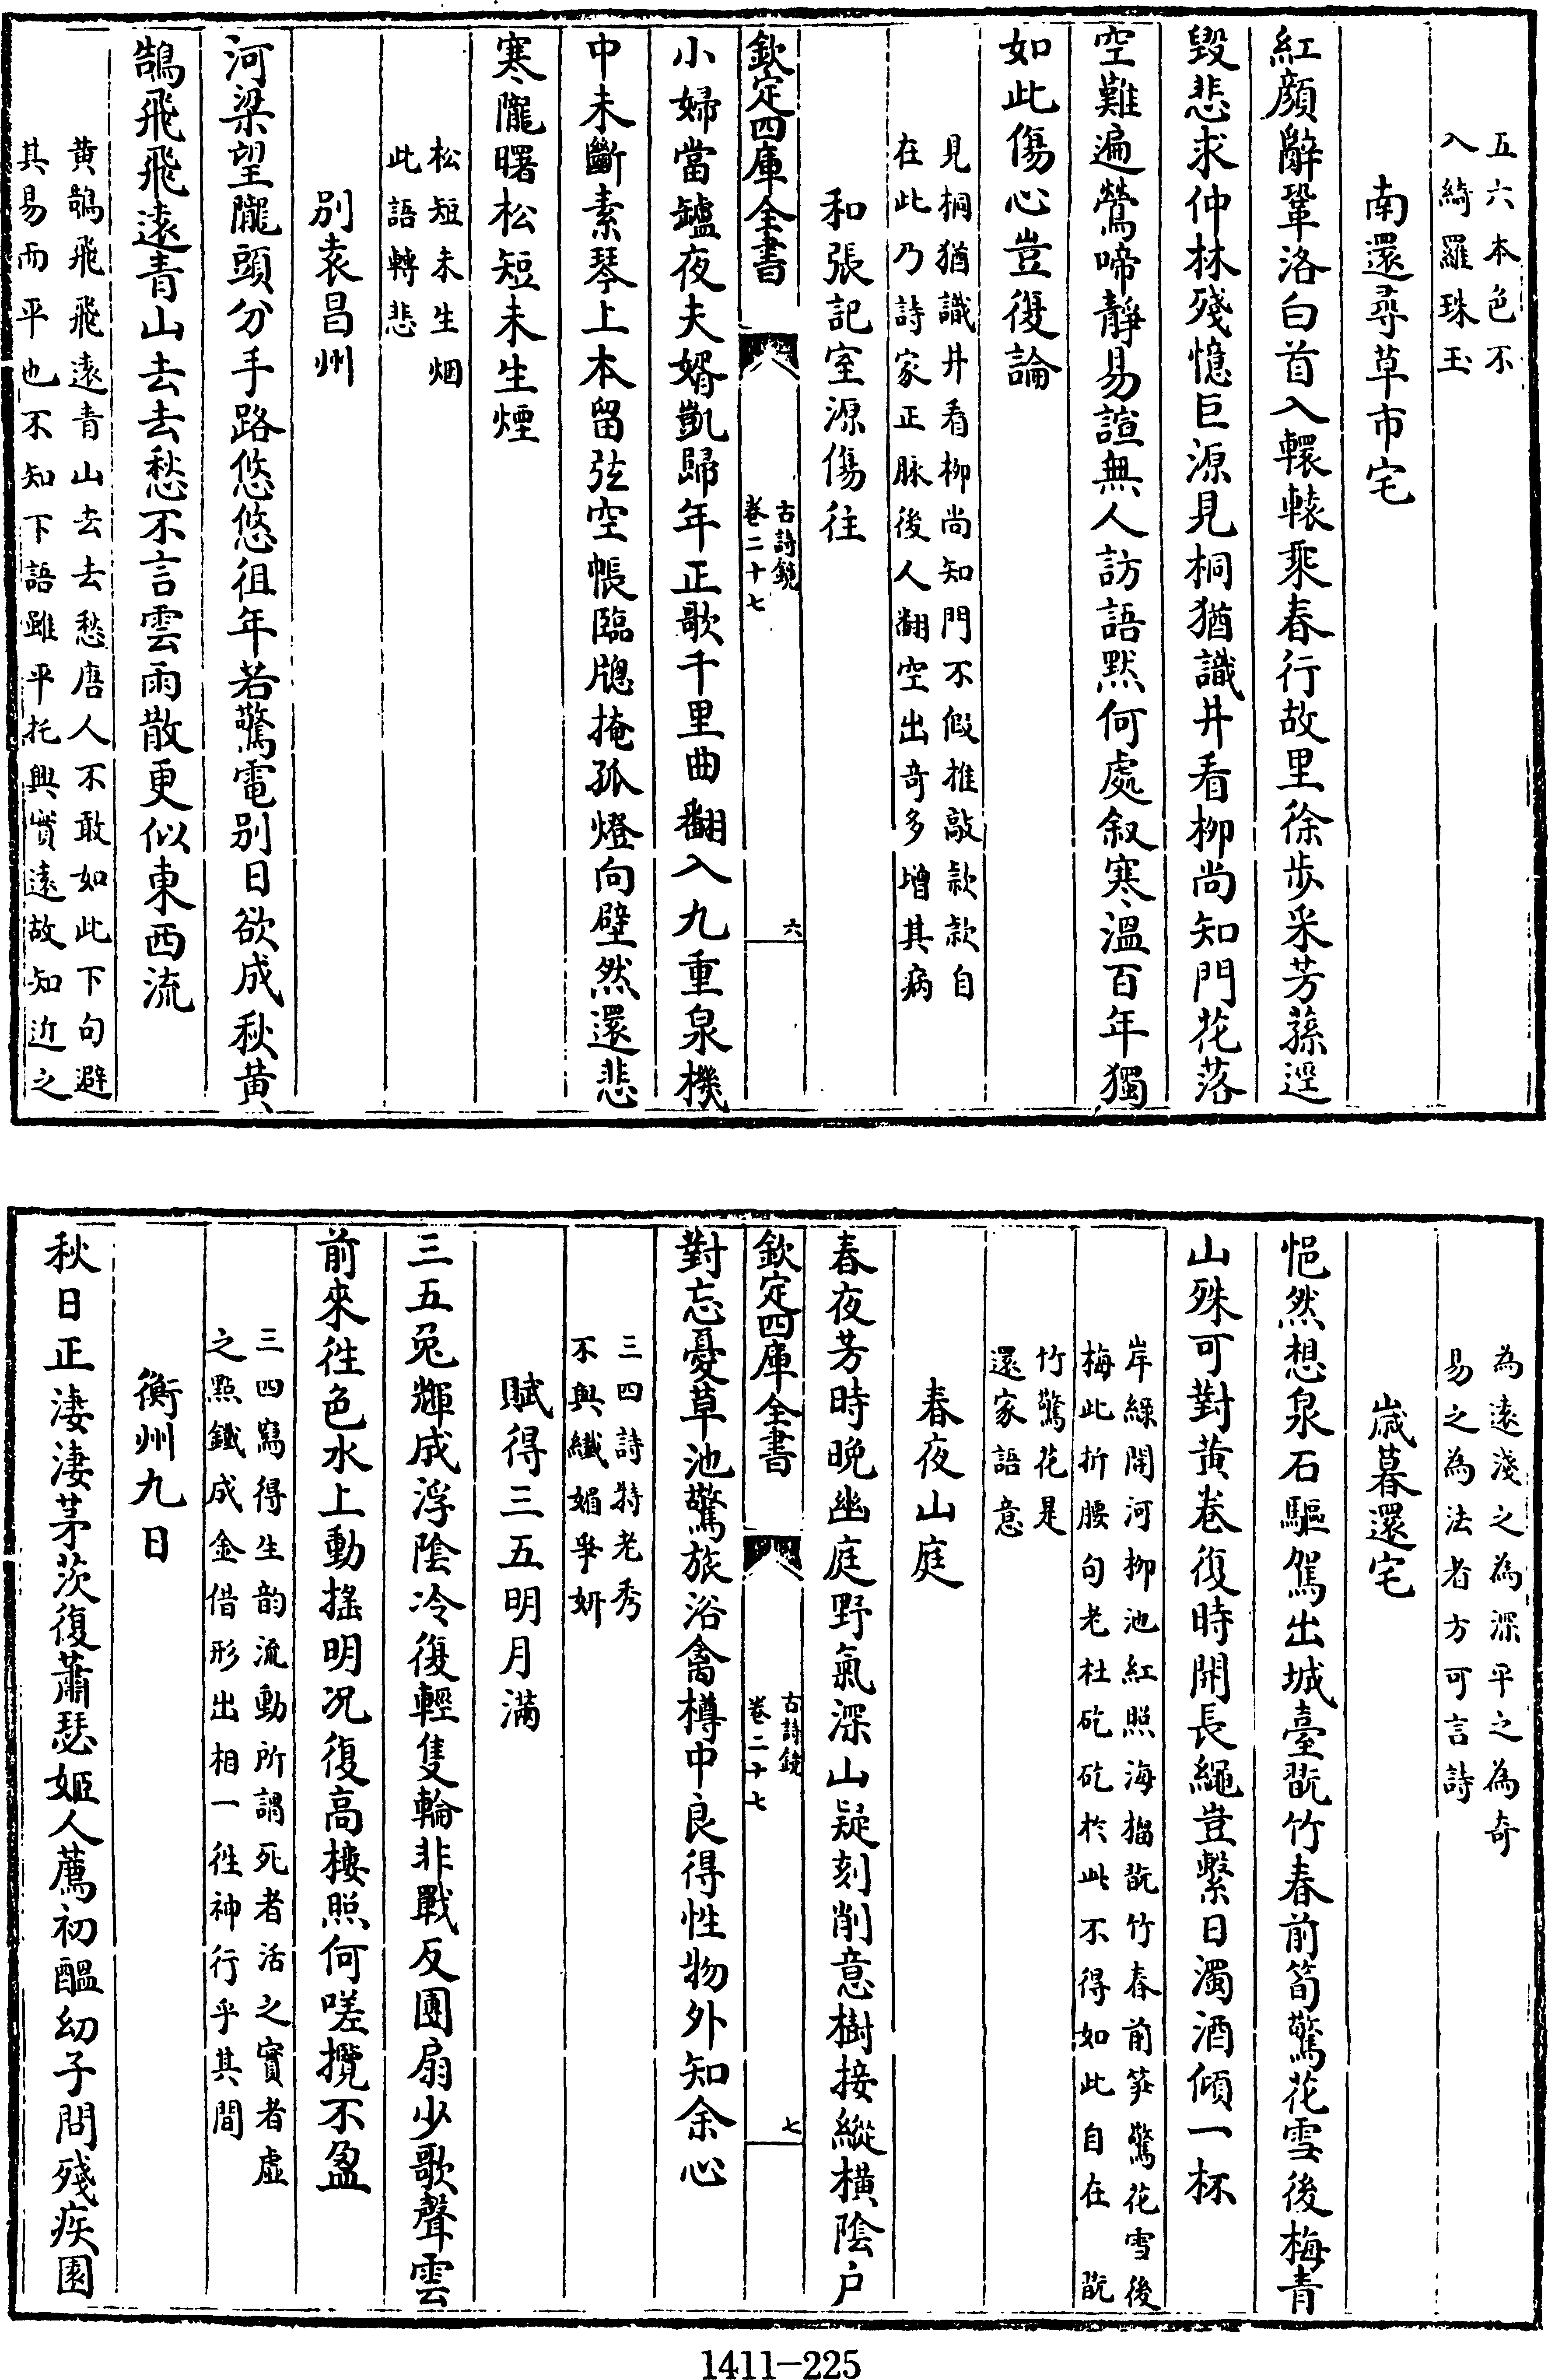 五六本色不
入綺羅珠玉
南還尋草市宅
紅顔辭鞏洛白首入轘轅乘春行故里徐步采芳蓀逕
毀悲求仲林殘憶巨源見桐猶識井看柳尚知門花落
空難遍鶯啼靜易諠無人訪語黙何處叙寒溫百年獨
如此傷心豈復論
見桐猶識井看柳尚知門不假推敲款款自
在此乃詩家正脉後人翻空出奇多增其病
和張記室源傷往
欽定四庫全書
古詩鏡
卷二十七
六
小婦當壚夜夫婿凱歸年正歌千里曲翻入九重泉機
中未斷素琴上本留弦空帳臨牕掩孤燈向壁然還悲
寒隴曙松短未生煙
松短未生烟
此語轉悲
別袁昌州
河梁望隴頭分手路悠悠徂年若驚電別日欲成秋黄
鵠飛飛遠青山去去愁不言雲雨散更似東西流
黄鵠飛飛遠青山去去愁唐人不敢如此下句避
其易而平也不知下語雖平托興實遠故知近之
為遠淺之為深平之為奇
易之為法者方可言詩
歳暮還宅
悒然想泉石驅駕出城臺翫竹春前筍驚花雪後梅青
山殊可對黄卷復時開長繩豈繫日濁酒傾一杯
岸緑開河柳池紅照海榴翫竹春前笋驚花雪後
梅此折腰句老杜矻矻於此不得如此自在 翫
竹驚花是
還家語意
春夜山庭
春夜芳時晚幽庭野氣深山疑刻削意樹接縱横陰户
欽定四庫全書
古詩鏡
卷二十七
七
對忘憂草池驚旅浴禽樽中良得性物外知余心
三四詩特老秀
不與纖媚爭妍
賦得三五明月滿
三五兔輝成浮陰冷復輕隻輪非戰反團扇少歌聲雲
前來徃色水上動搖明况復高樓照何嗟攬不盈
三四寫得生韵流動所謂死者活之實者虛
之點鐵成金借形出相一徃神行乎其間
衡州九日
秋日正淒淒茅茨復蕭瑟姬人薦初醖幼子問殘疾園
1411-225